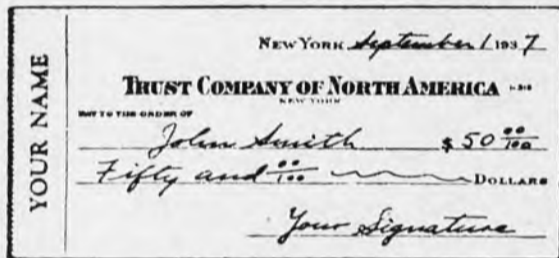 YOUR NAME
NEW YORK September 1 1937
TRUST COMPANY OF NORTH AMERICA 1-318
NEW YORK
PAY TO THE ORDER OF
John Smith $ 50 00/100
Fifty and 00/100 DOLLARS
Your Signature